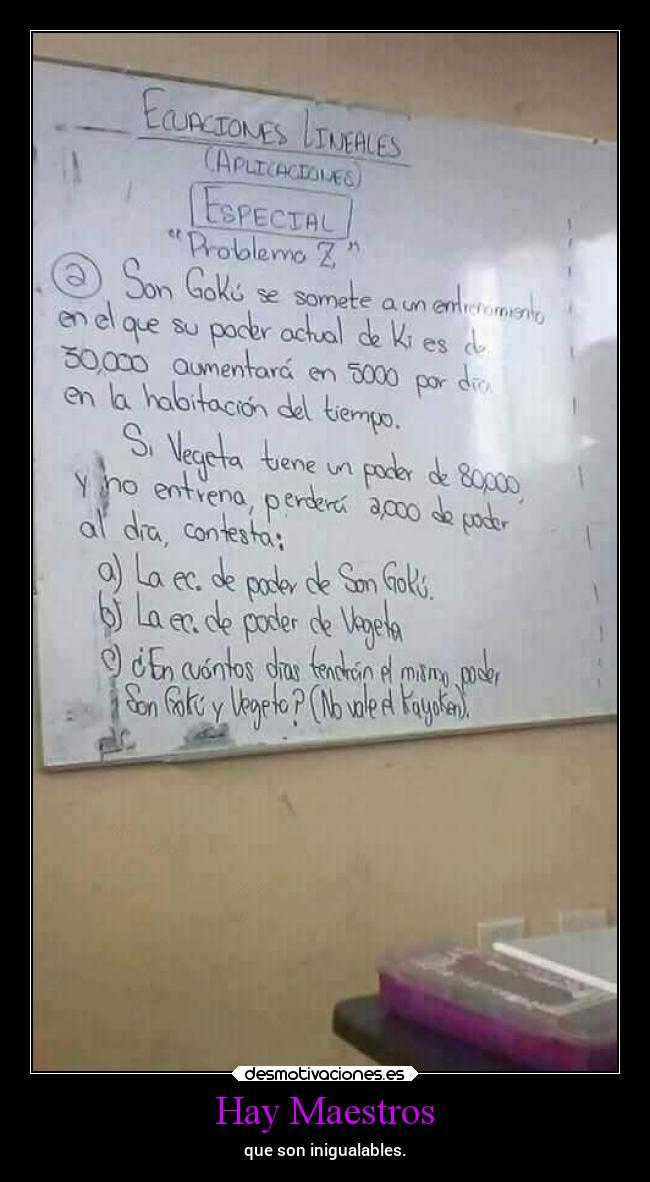 ECUACIONES LINEALES
(APLICACIONES)
ESPECIAL
"Problema Z"
② Son Gokú se somete a un entrenamiento
en el que su poder actual de Ki es de
30,000 aumentará en 5000 por día
en la habitación del tiempo.
Si Vegeta tiene un poder de 80,000,
y no entrena, perderá 2,000 de poder
al día, contesta:
a) La ec. de poder de Son Gokú.
b) La ec. de poder de Vegeta
c) ¿En cuántos días tendrán el mismo poder
Son Gokú y Vegeta? (No vale el Kayoken).
desmotivaciones.es
Hay Maestros
que son inigualables.